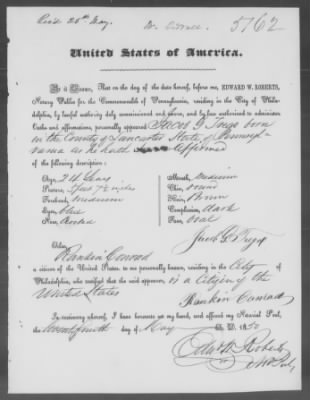 Recd 26th May. 5762
United States of America.
Be it Known, That on the day of the date hereof, before me, EDWARD W. ROBERTS,
Notary Public for the Commonwealth of Pennsylvania, residing in the City of Philadelphia,
by lawful authority duly commissioned and sworn, and by law authorized to administer
Oaths and affirmations, personally appeared Jacob G born
in the County of Lancaster State of Pennsyl
vania as he hath Affirmed
of the following description:
Age, 24 Years
Stature, 5 feet 7½ inches
Forehead, medium
Eyes, blue
Nose,
Mouth, medium
Chin, round
Hair, Brown
Complexion, dark
Face, Oval
Jacob G.
Also,
Rankin Conrad
a citizen of the United States, to me personally known, residing in the City of
Philadelphia, who testified that the said appearer, is a Citizen of the
United States
Rankin Conrad
In testimony whereof, I have hereunto set my hand, and affixed my Notarial Seal,
the day of May A. D. 1850
Edw W. Roberts